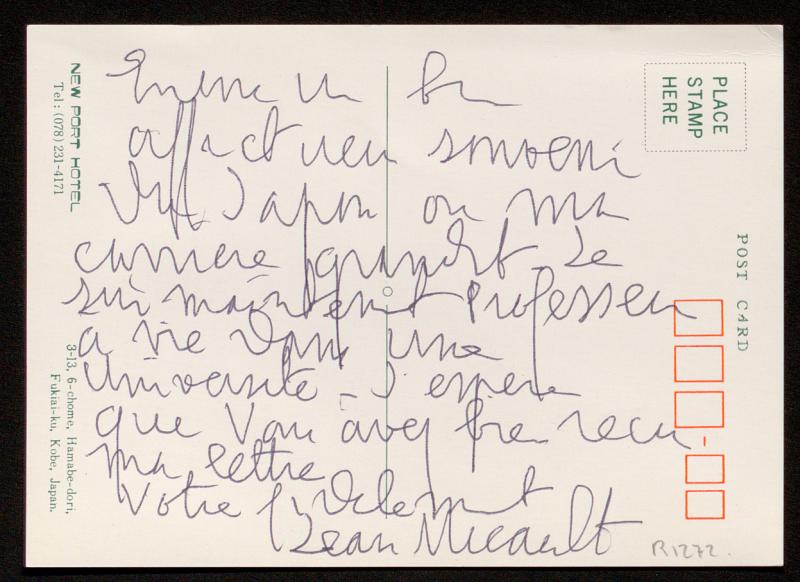 Encore un bien
affectueux souvenir
du Japon où ma
carrière grandit. Je
suis maintenant Professeur
à vie dans une
Université. J'espère
que vous avez bien reçu
ma lettre
Votre fidèlement
Jean Micault
PLACE
STAMP
HERE
POST CARD
NEW PORT HOTEL
Tel: (078) 231-4171
3-13, 6-chome, Hamabe-dori,
Fukiai-ku, Kobe, Japan.
R1272.